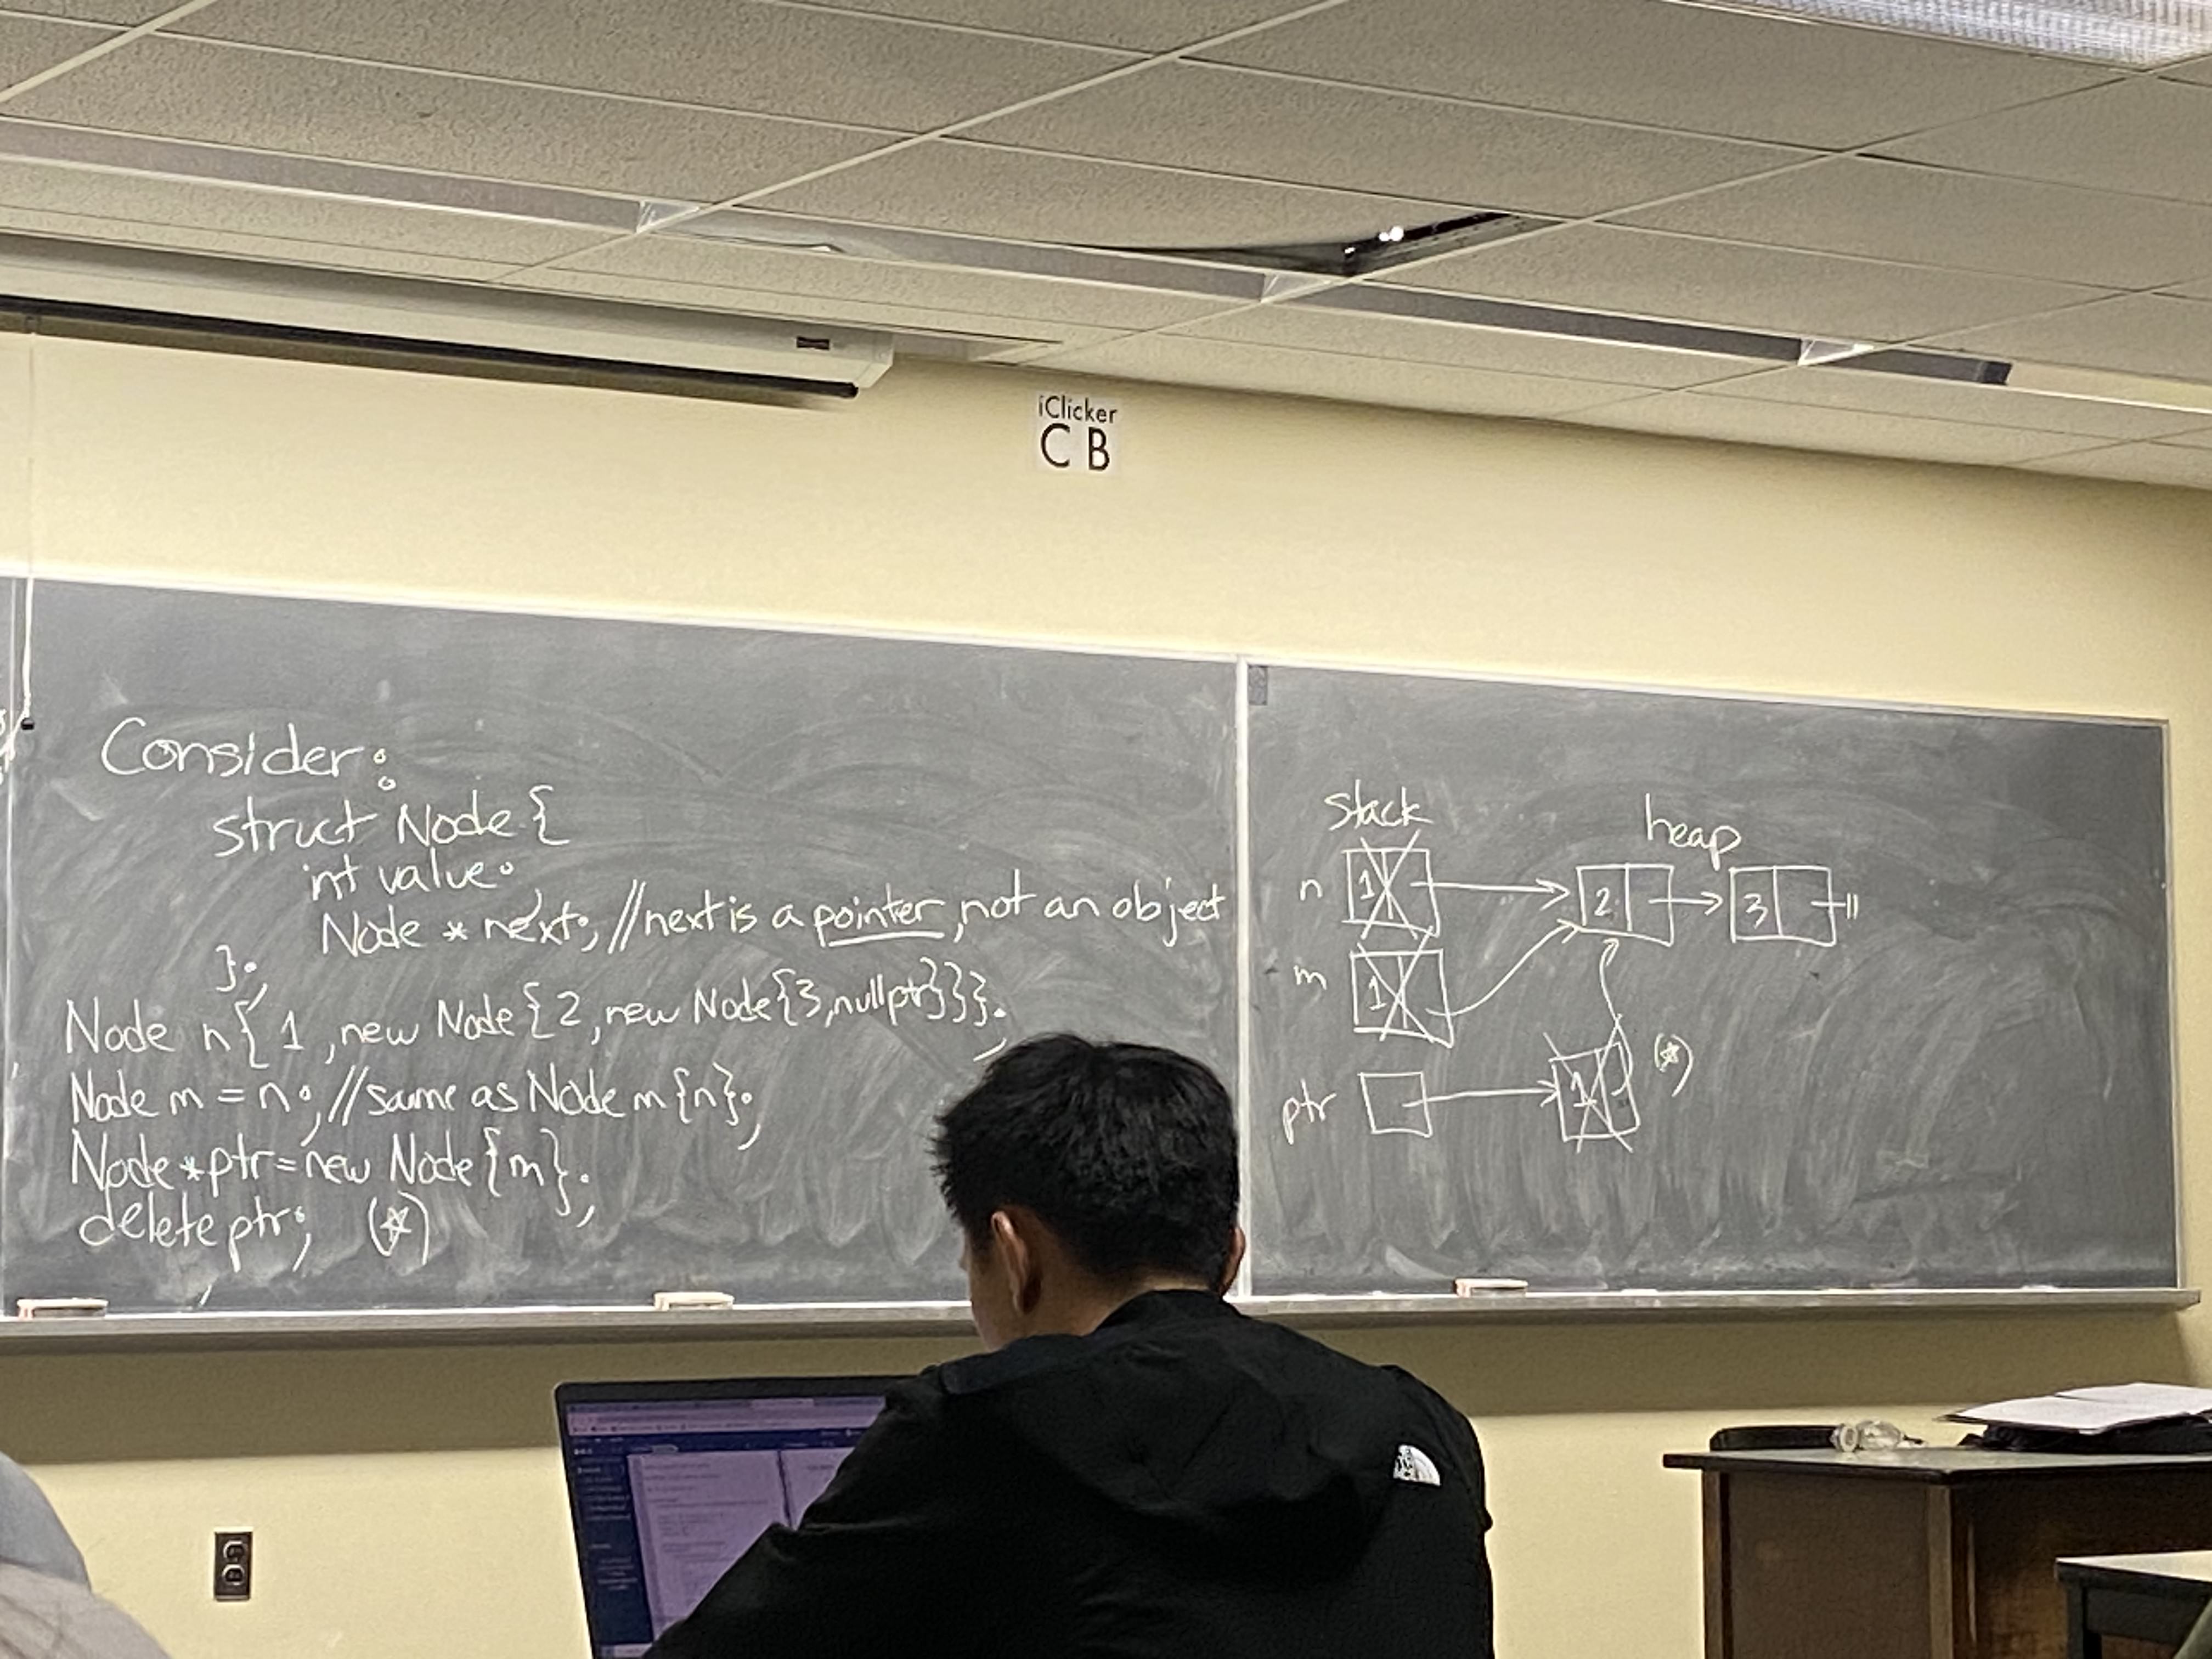 iClicker
C B
Consider:
struct Node {
int value;
Node * next; //next is a pointer, not an object
};
Node n{1, new Node{2, new Node{3, nullptr}}};
Node m = n; //same as Node m{n};
Node*ptr=new Node{m};
delete ptr; (☆)
stack
heap
n 1 2 3
m 1
ptr 1 (☆)